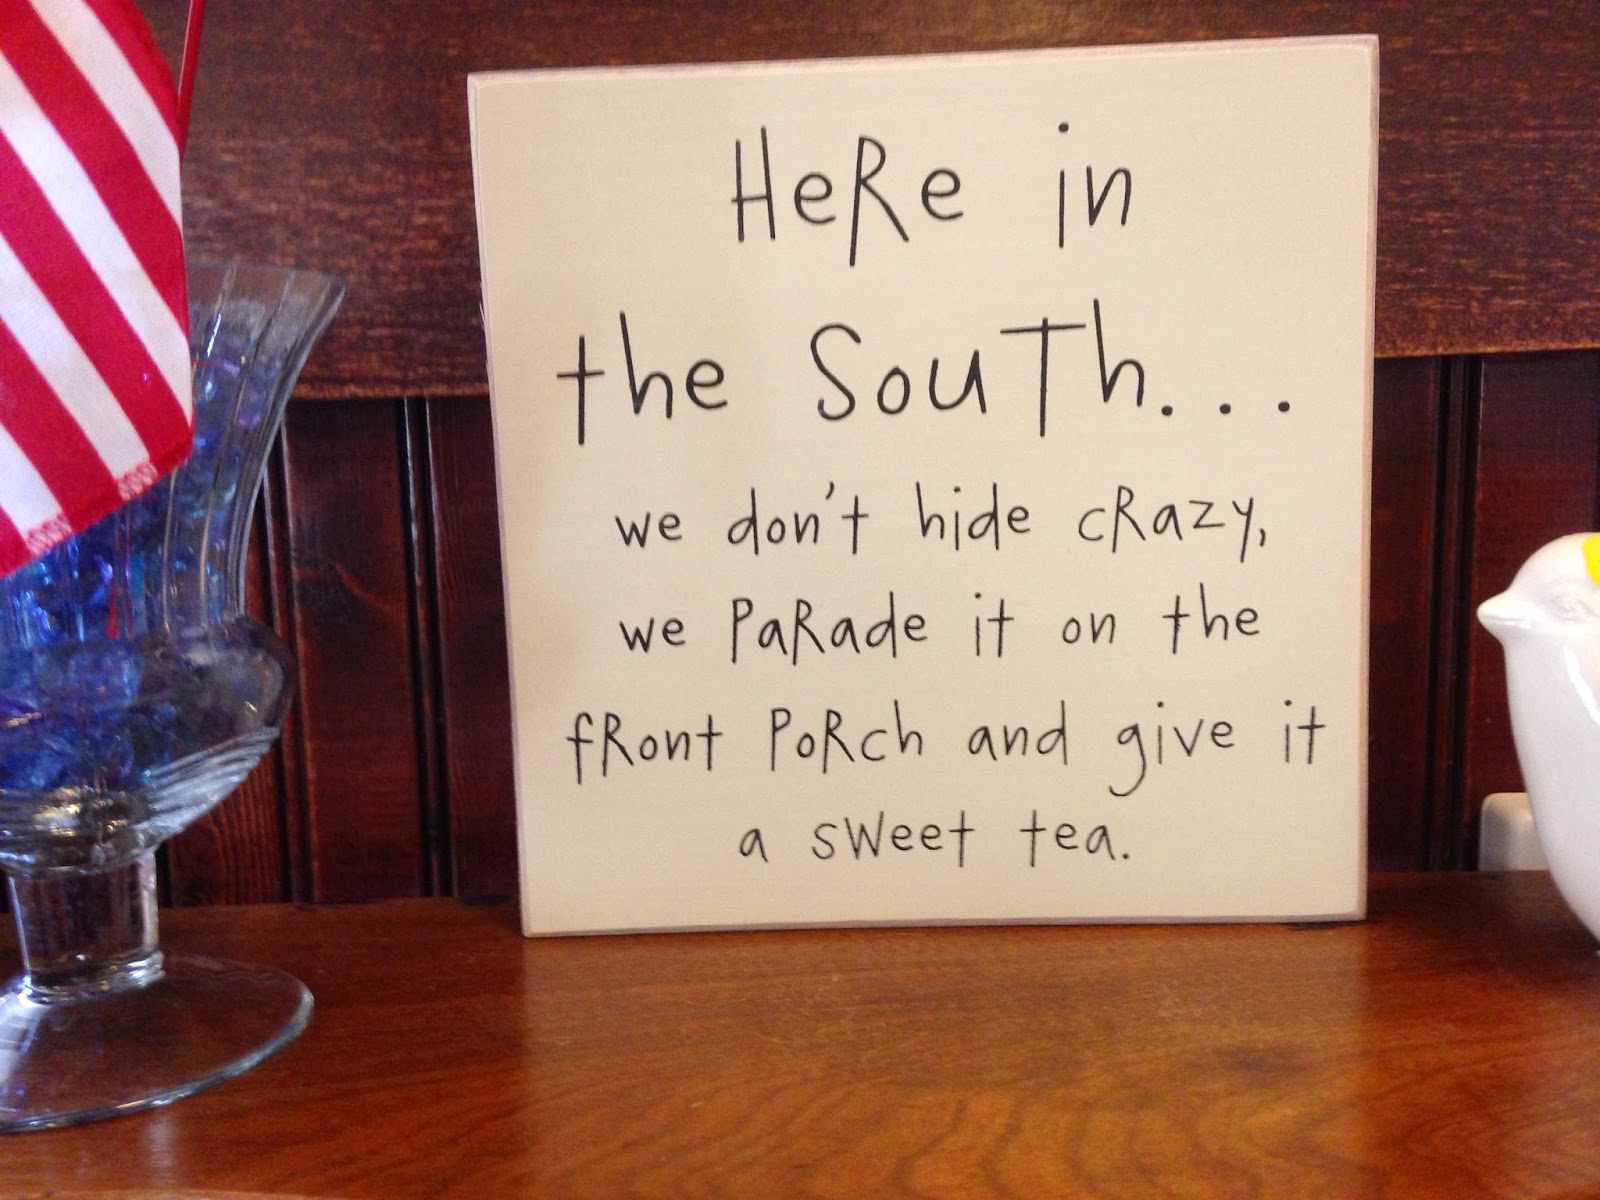 HeRe in
the SouTh...
we don't hide cRazy,
we PaRade it on the
fRont PoRch and give it
a sWeet tea.